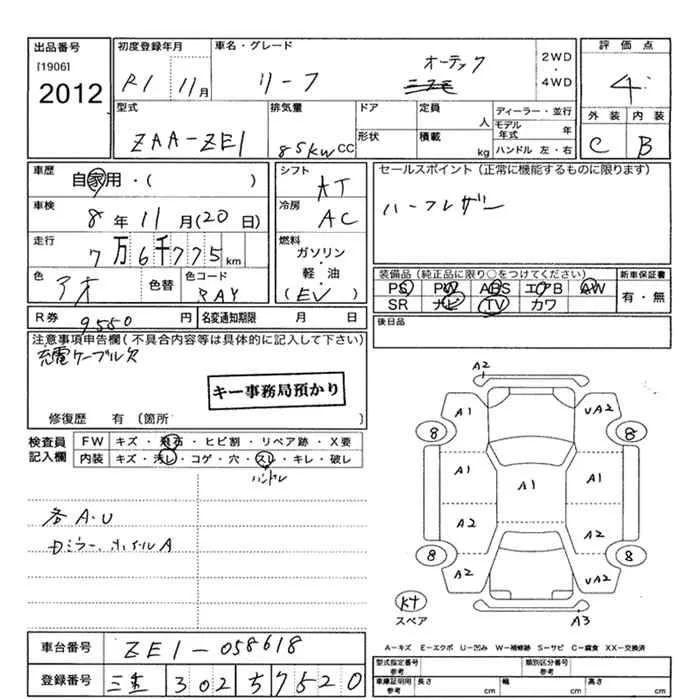 出品番号
[1906]
2012
初度登録年月
R1 11月
車名・グレード
リーフ
オーテック
2WD
・
4WD
評価点
4
外装 内装
C B
型式
ZAA-ZE1
排気量
85kw CC
ドア
形状
定員
人
積載
kg
ディーラー・並行
モデル
年式 年
ハンドル 左・右
車歴
自家用・( )
車検
8年11月(20日)
走行
7万6千775km
色
アオ
色替
色コード
RAY
シフト
AT
冷房
AC
燃料
ガソリン
・
軽・油
(EV)
セールスポイント(正常に機能するものに限ります)
ハーフレザー
装備品(純正品に限り○をつけてください)
PS PW ABS エアB AW
SR ナビ TV カワ
新車保証書
有・無
後日品
R券 9550 円
名変通知期限 月 日
注意事項申告欄(不具合内容等は具体的に記入して下さい)
充電ケーブル欠
キー事務局預かり
修復歴 有 (箇所 )
検査員
記入欄
FW キズ・飛石・ヒビ割・リペア跡・X要
内装 キズ・汚レ・コゲ・穴・スレ・キレ・破レ
ハンドル
各A・U
ドミラー、ホイルA
A2
A1 UA2
8 8
A1 A1 A1
A2 A2
8 8
A2 UA2
A3
スペア
A-キズ E-エクボ U-凹み W-補修跡 S-サビ C-腐食 XX-交換済
車台番号 ZE1-058618
登録番号 三重 302 そ 7520
型式指定番号
参考
類別区分番号
参考
車庫証明用
参考
長さ cm 幅 cm 高さ cm